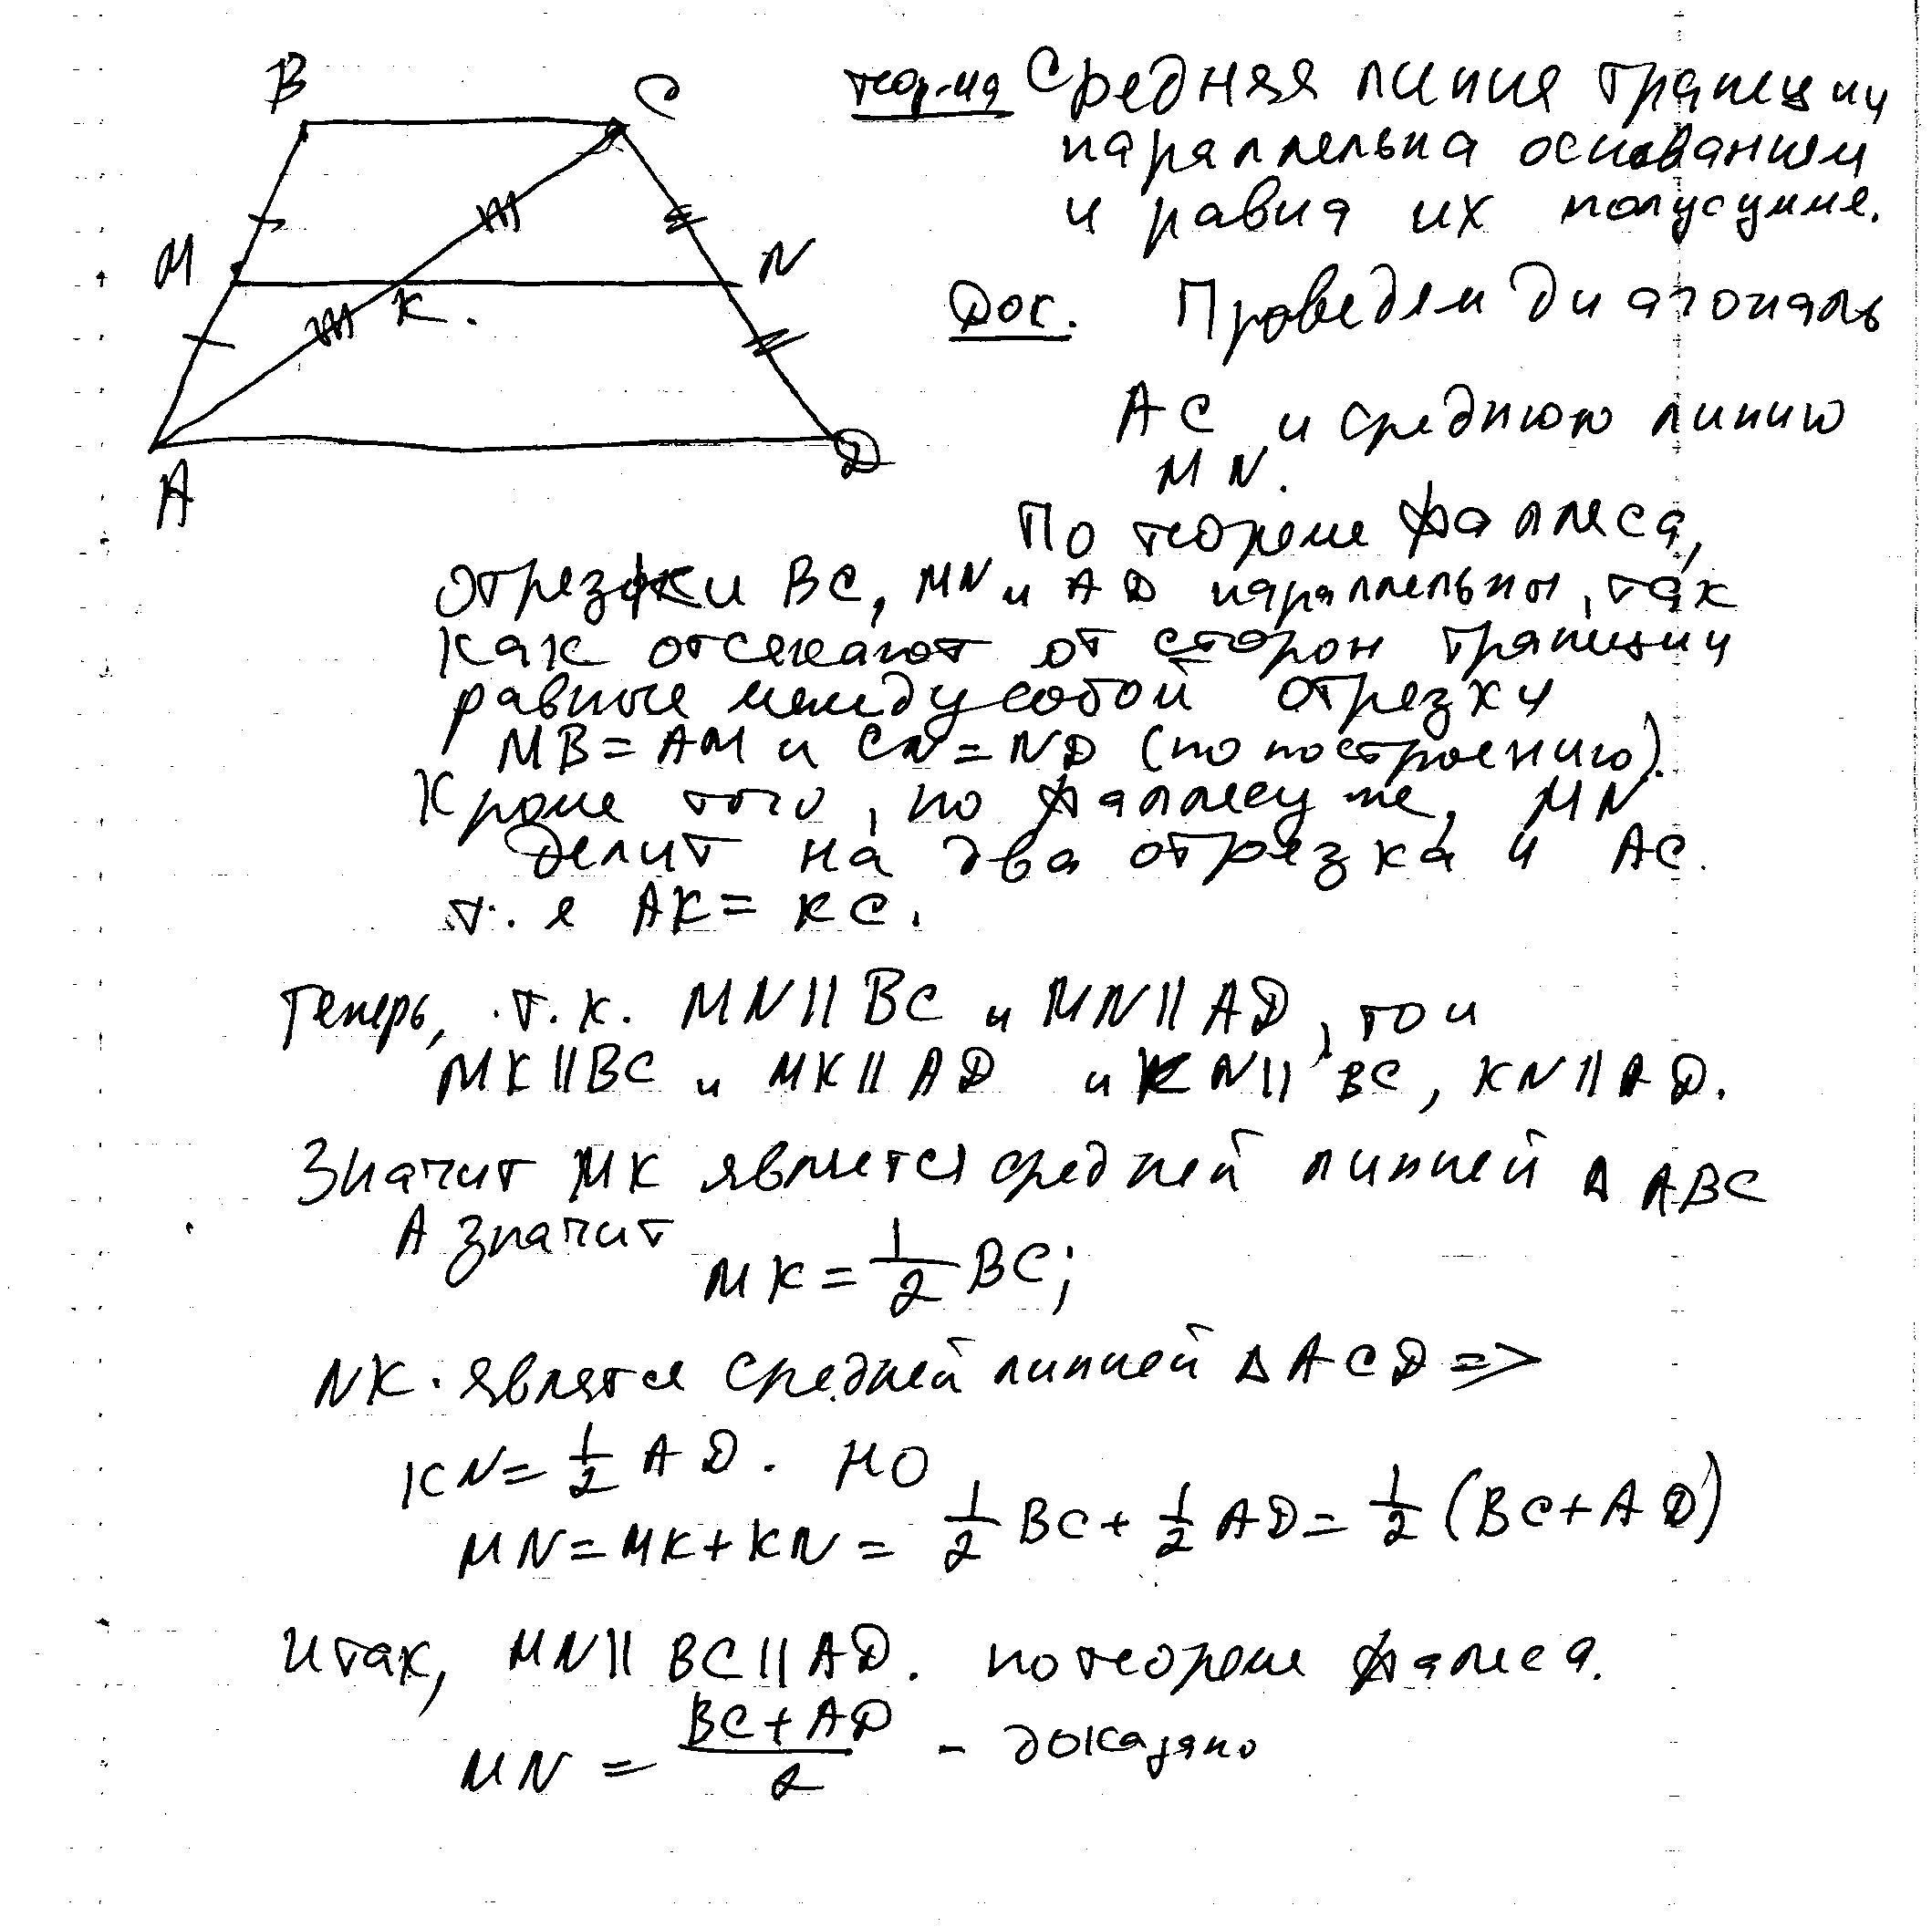 B
C
M
N
K.
A
D
теор-ия Средняя линия трапеции
параллельна основаниям
и равна их полусумме.
Док. Проведем диагональ
AC и среднюю линию
MN.
По теореме Фаллеса,
отрезки BC, MN и AD параллельны, так
как отсекают от сторон трапеции
равные между собой отрезки
MB = AM и CN = ND (по построению).
Кроме того, по Фаллесу же, MN
делит на два отрезка и AC.
т. е AK = KC.
Теперь, т. к. MN || BC и MN || AD, то и
MK || BC и MK || AD и KN || BC, KN || AD.
Значит MK является средней линией Δ ABC
А значит
MK = 1/2 BC;
NK является средней линией Δ ACD =>
KN = 1/2 AD. НО
MN = MK + KN = 1/2 BC + 1/2 AD = 1/2 (BC + AD)
Итак, MN || BC || AD. по теореме Фалеса.
MN = (BC + AD)/2 - доказано